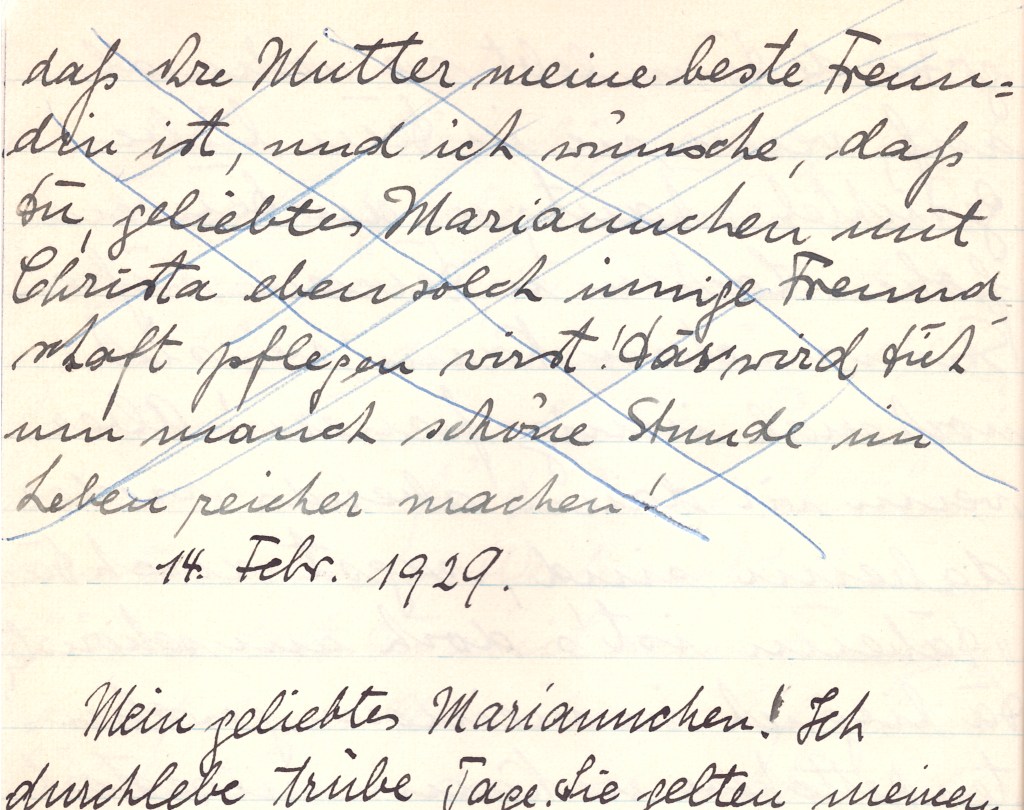 daß ihre Mutter meine beste Freun=
din ist, und ich wünsche, daß
Du, geliebtes Mariannchen mit
Christa ebensolch innige Freund-
schaft pflegen wirst! Das wird Dich
um manch schöne Stunde im
Leben reicher machen!
14. Febr. 1929.
Mein geliebtes Mariannchen! Ich
durchlebe trübe Tage. Sie gelten meinem